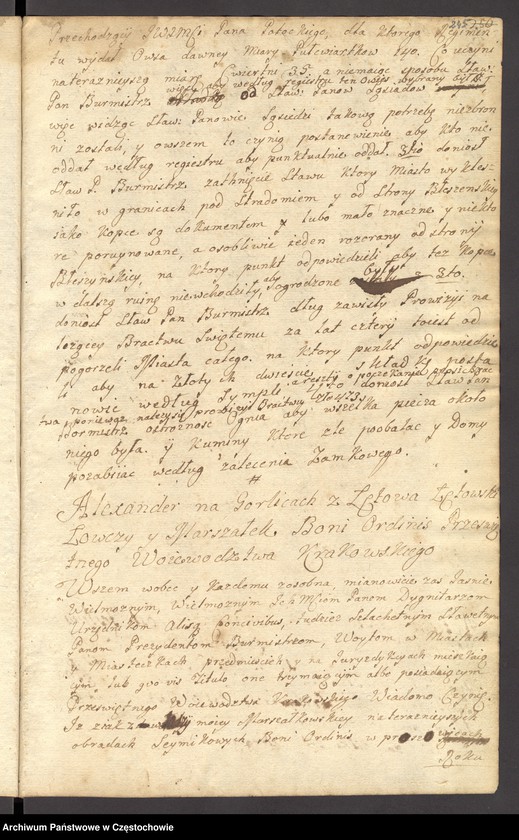 245
Przechodzący JWJMCi Pana Potockiego, dla którego Regimen
tu wydał Owsa dawney Miary Pułcwiartków 140. Co uczyni
naterazniyszą miarę Cwiertni 35. a niemaiąc sposobu Sław:
Pan Burmistrz według regestru ten Owies wybrany
od Sław: Panow Sąsiadow
więc widząc Sław: Panowie Sąsiedzi takową potrzebę niezbron
ni zostali y owszem to czynią postanowienie aby kto nie
oddał według regiestru aby punktualnie oddał. 3tio doniosł
Sław P. Burmistrz zathnięcie Stawu który Miasto wykles
niło w granicach pod Stradomiem y od Strony Błeszenskiey
jako Kopce są dokumentem lubo mało znaczne y niekto
re poruynowane, a osobliwie ieden rozorany od strony
Błeszynskiey, na który punkt odpowiedzieli aby też Kopce
w dalszą ruinę niewchodziły, aby ogrodzone były 3to.
doniosł Sław Pan Burmistrz dług zawisły Prowizyi na
leżącey Bractwu Swiętemu za lat cztery toiest od
pogorzeli Miasta całego. na który punkt odpowiedzie
li aby na Złotych dwiescie składkę posta
nowić według Symple
doniosł Sław Pan
Burmistrz ostrożność Ognia aby wszelka piecza około
niego była. y kuminy które złe poobalać y Domy
pozabiiać według zalecenia Zamkowego.
#
Alexander na Gorlicach z Łętowa Łętowski
Łowczy y Marszałek Boni Ordinis Przeswię
tnego Woiewodztwa Krakowskiego
Wszem wobec y Każdemu zosobna, mianowicie zas Jasnie
Wielmożnym, Wielmożnym Ich Mciom Panom Dygnitarzom
Urzędnikom, tudziesz Szlachetnym Sławetnym
Panom Prezydentom Burmistrzom, Woytom w Miastach
y Miasteczkach przedmiesciach y na Jurysdykcyach mieszkaią
cym, lub quo vis Titulo one trzymaiącym albo posiadaiącym
Przeswietnego Woiewodztwa Krakowskiego Wiadomo Czynię
Jż mocy Marszałkowskiey na terazniejszych
obradach Seymikowych Boni Ordinis w
Roku
Archiwum Państwowe w Częstochowie